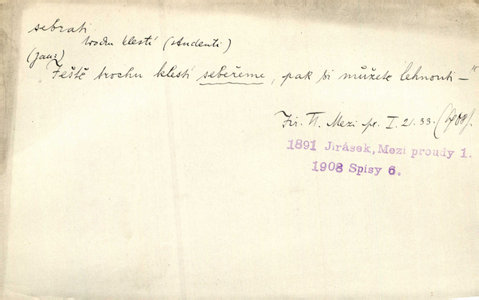 sebrati
trochu klestí (studenti)
(Janí)
„Ještě trochu klestí sebéřeme, pak si můžete lehnouti –"
Jir. Tř. Mezi pr. I. 21. 33.
1891 Jirásek, Mezi proudy 1.
1908 Spisy 6.